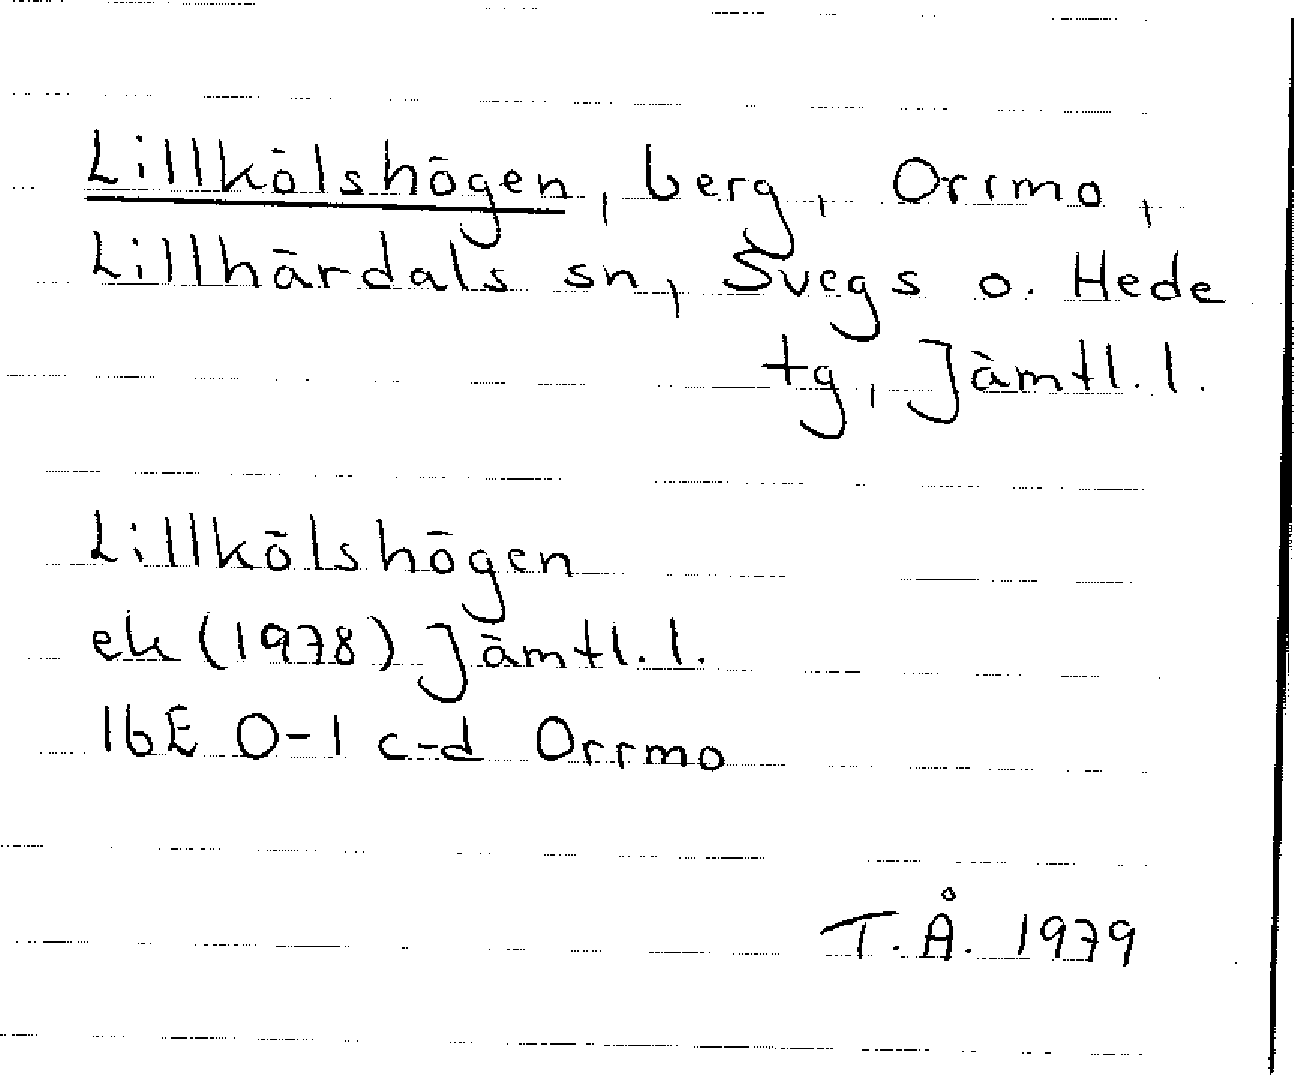 Lillkölshögen, berg, Orrmo,
Lillhärdals sn, Svegs o. Hede
tg, Jämtl. l.
Lillkölshögen
ek (1978) Jämtl. l.
16E 0-1 c-d Orrmo
T. Å. 1979